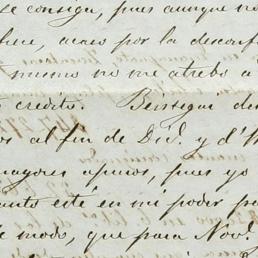 se consiga, pues aunque no
hue, acaso por la desconf
mismo no me atrebo a
credito. Beissegui de
os al fin de Dic.e y d'
mayores apuros, pues yo
anto esté en mi poder pa
e modo, que para Nov.e